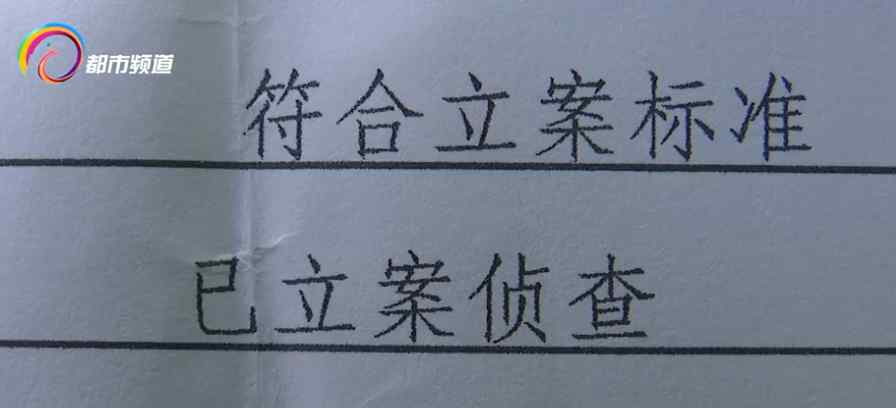 都市频道
符合立案标准
已立案侦查